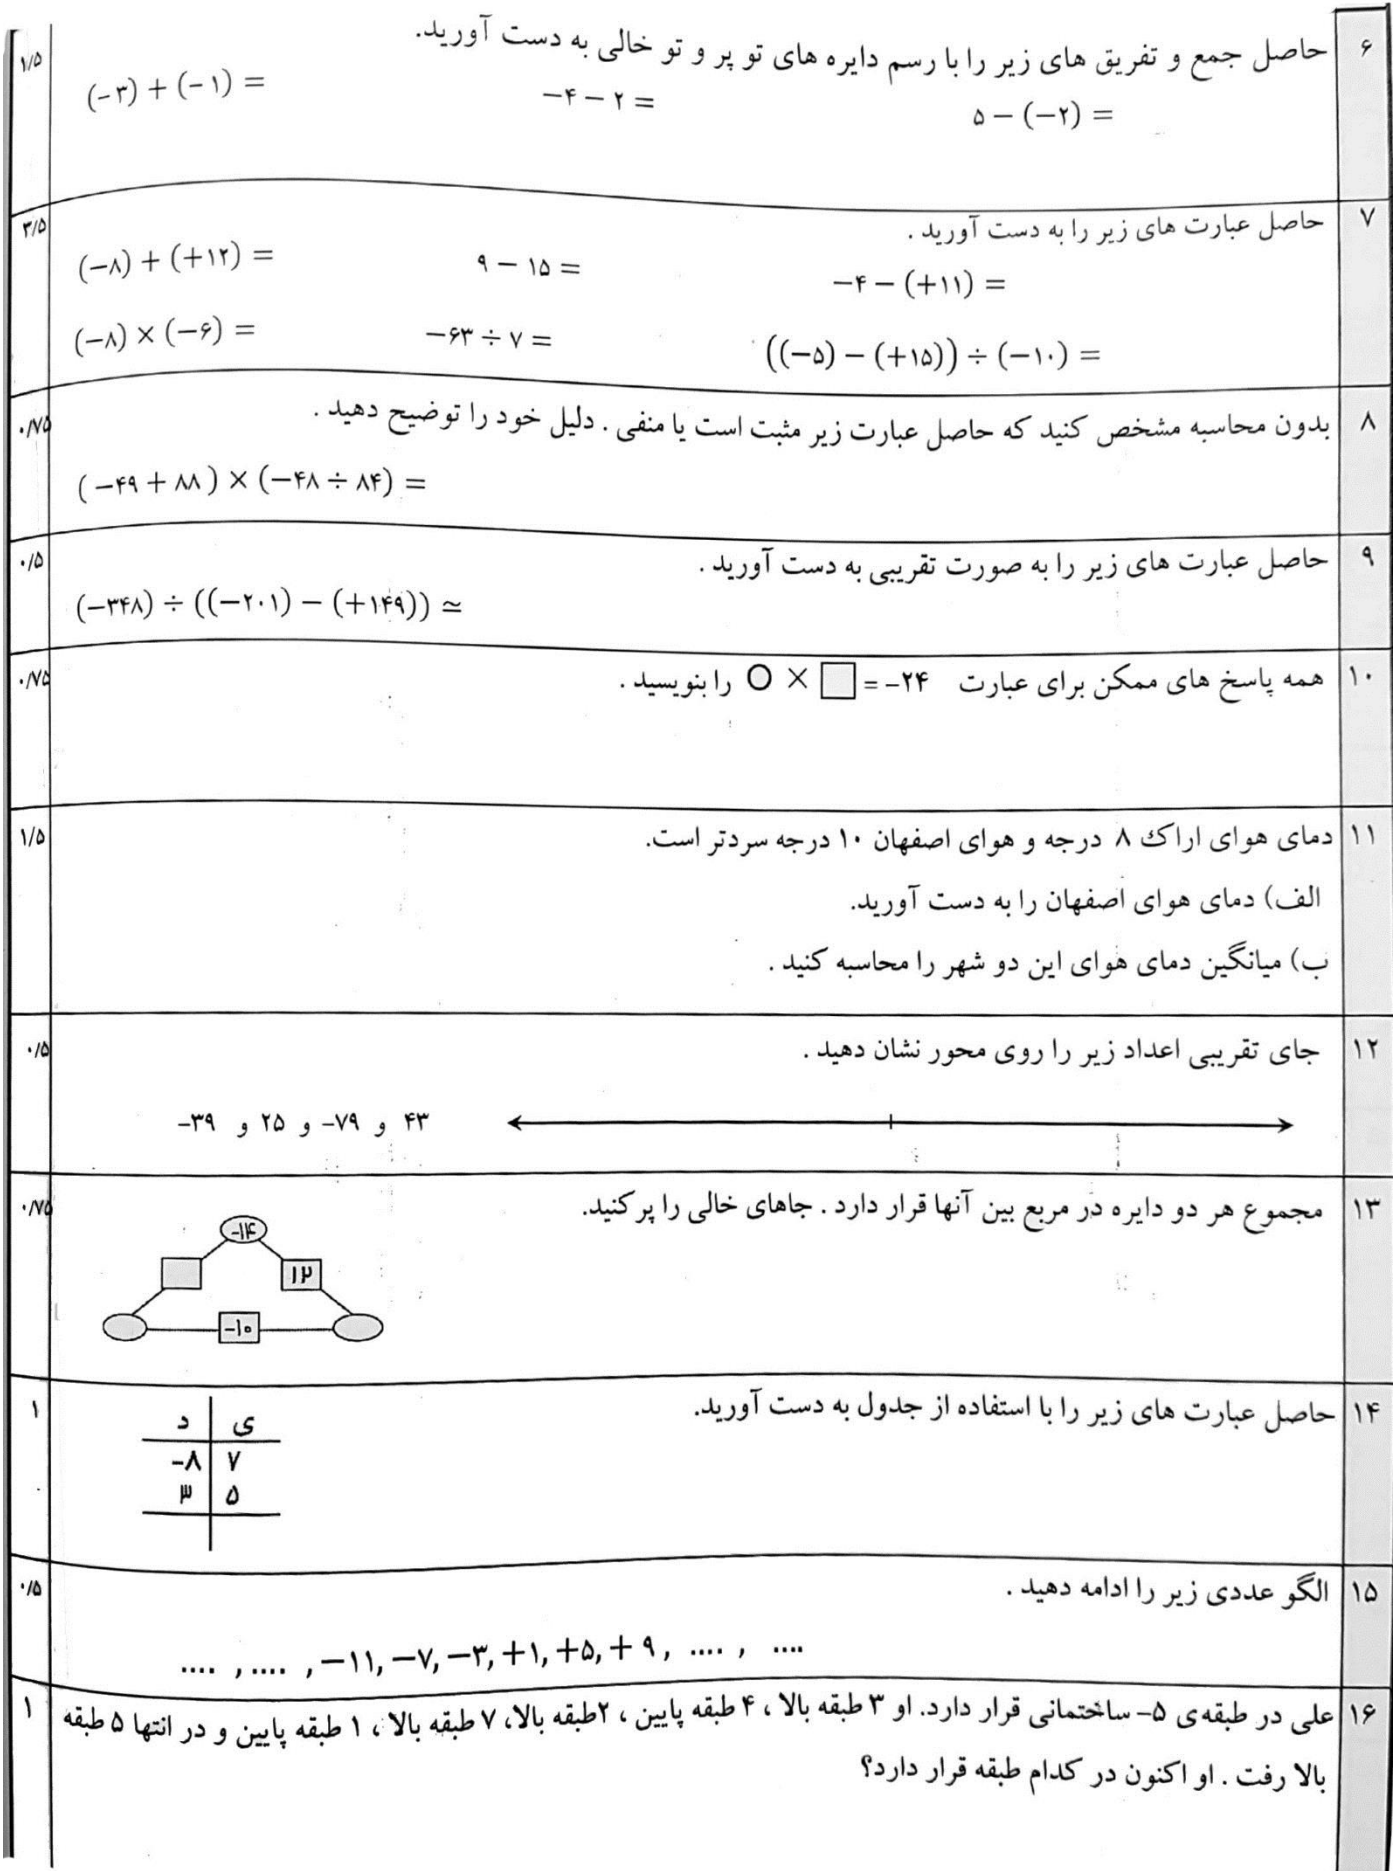 ۶ حاصل جمع و تفریق های زیر را با رسم دایره های تو پر و تو خالی به دست آورید. ۱/۵
(-۳) + (-۱) =    -۴ - ۲ =    ۵ - (-۲) =
۷ حاصل عبارت های زیر را به دست آورید . ۳/۵
(-۸) + (+۱۲) =    ۹ - ۱۵ =    -۴ - (+۱۱) =
(-۸) × (-۶) =    -۶۳ ÷ ۷ =    ((-۵) - (+۱۵)) ÷ (-۱۰) =
۸ بدون محاسبه مشخص کنید که حاصل عبارت زیر مثبت است یا منفی . دلیل خود را توضیح دهید . ۰/۷۵
(-۴۹ + ۸۸) × (-۴۸ ÷ ۸۴) =
۹ حاصل عبارت های زیر را به صورت تقریبی به دست آورید . ۰/۵
(-۳۴۸) ÷ ((-۲۰۱) - (+۱۴۹)) ≃
۱۰ همه پاسخ های ممکن برای عبارت ○ × □ = -۲۴ را بنویسید . ۰/۷۵
۱۱ دمای هوای اراک ۸ درجه و هوای اصفهان ۱۰ درجه سردتر است. ۱/۵
الف) دمای هوای اصفهان را به دست آورید.
ب) میانگین دمای هوای این دو شهر را محاسبه کنید .
۱۲ جای تقریبی اعداد زیر را روی محور نشان دهید . ۰/۵
۴۳ و -۷۹ و ۲۵ و -۳۹
۱۳ مجموع هر دو دایره در مربع بین آنها قرار دارد . جاهای خالی را پر کنید. ۰/۷۵
-۱۴
۱۲
-۱۰
۱۴ حاصل عبارت های زیر را با استفاده از جدول به دست آورید. ۱
د ی
-۸ ۷
۳ ۵
۱۵ الگو عددی زیر را ادامه دهید . ۰/۵
.... , .... , -۱۱, -۷, -۳, +۱, +۵, +۹, .... , ....
۱۶ علی در طبقه‌ی ۵- ساختمانی قرار دارد. او ۳ طبقه بالا ، ۴ طبقه پایین ، ۲طبقه بالا، ۷ طبقه بالا ، ۱ طبقه پایین و در انتها ۵ طبقه ۱
بالا رفت . او اکنون در کدام طبقه قرار دارد؟